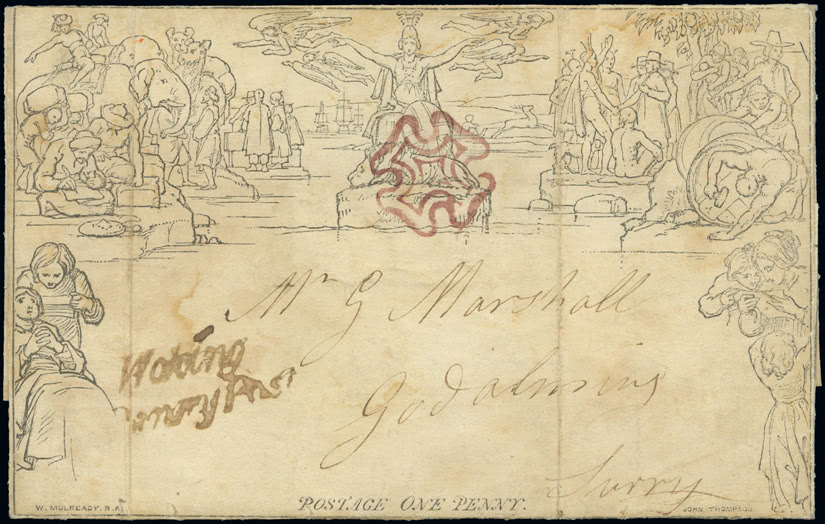 Mr G Marshall
Godalming
Surry
Woking
Penny Post
W. MULREADY. R.A.
POSTAGE ONE PENNY.
JOHN THOMPSON